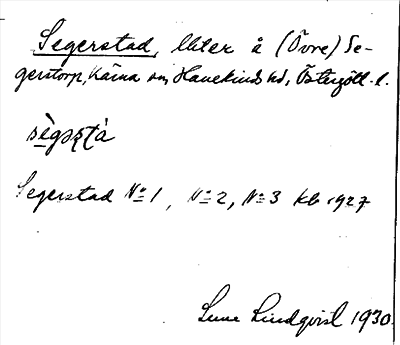 Segerstad, llter å (Övre) Se-
gerstorp, Kärna sn, Hanekinds hd, Östergötl. l.
sègs̥t̥à
Segerstad No 1, No 2, No 3 Kb 1927
Sune Lindqvist 1930.